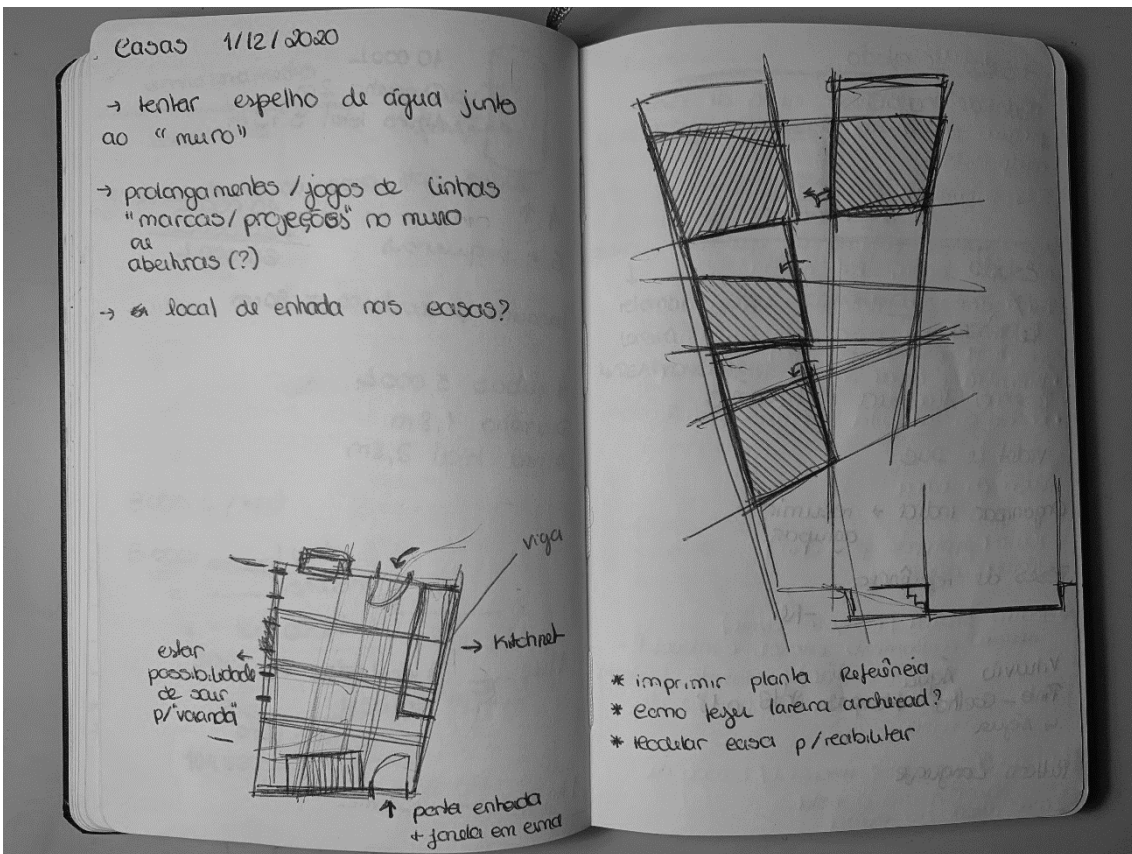 Casas 1/12/2020
→ tentar espelho de água junto
ao "muro"
→ prolongamentos / jogos de linhas
"marcas / projeções" no muro
ou
aberturas (?)
→ local de entrada nas casas?
viga
→ Kitchnet
estar ←
possibilidade
de sair
p/ "varanda"
↑ porta entrada
+ janela em cima
* imprimir planta Referência
* como fazer lareira archicad?
* casa p/ reabilitar